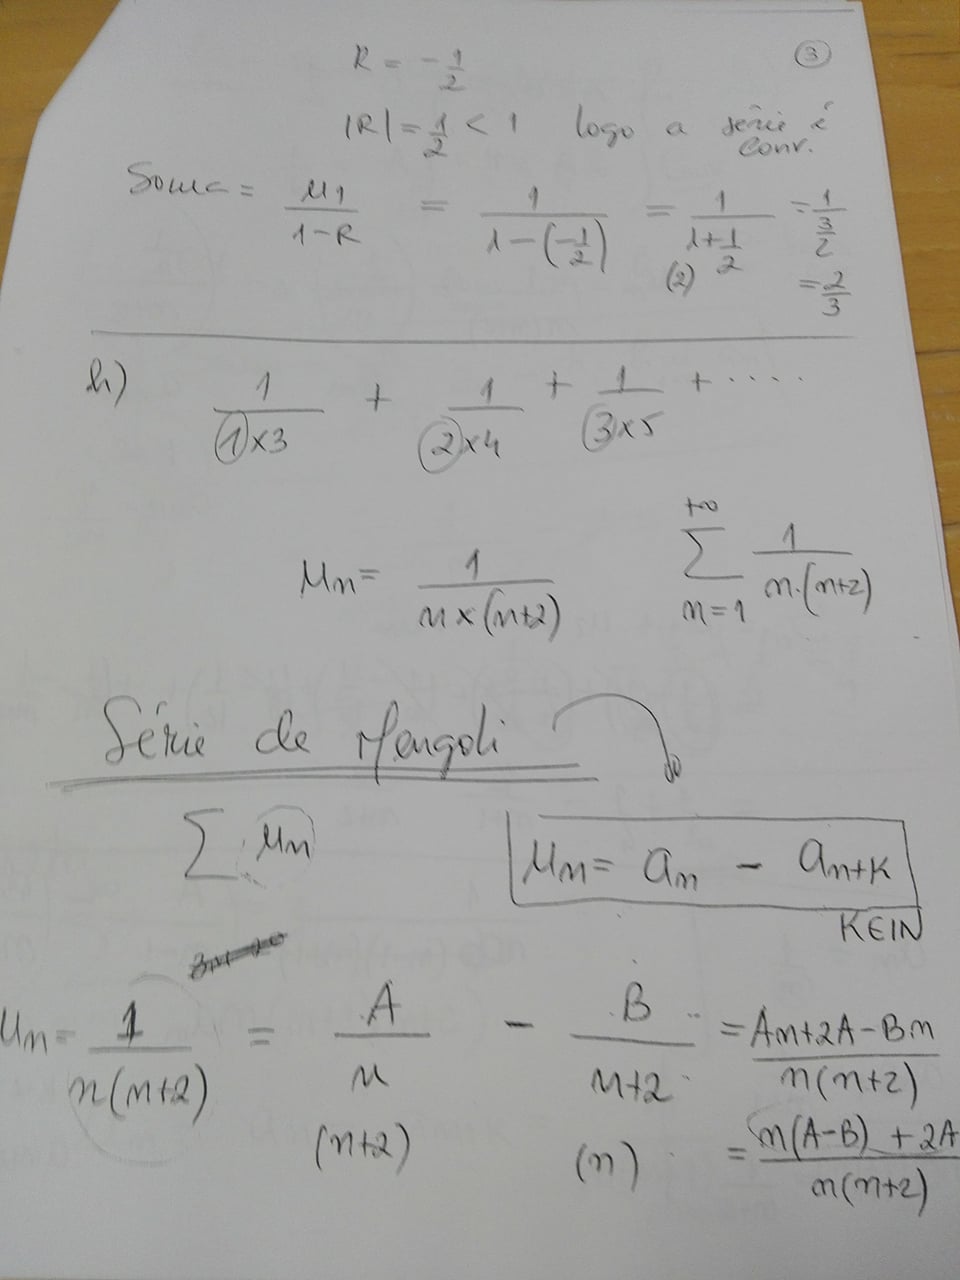 ③
R = -1/2
|R| = 1/2 < 1 logo a série é conv.
Soma = u1/(1-R) = 1/(1-(-1/2)) = 1/(1+1/2) = 1/(3/2)
(2)
= 2/3
h) 1/(1×3) + 1/(2×4) + 1/(3×5) + .....
un = 1/(n×(n+2)) +∞ Σ n=1 1/(n.(n+2))
Série de Mengoli
Σ un un = an - an+k
KEIN
un = 1/(n(n+2)) = A/n - B/(n+2) = (An+2A-Bn)/(n(n+2))
(n+2) (n) = (n(A-B) + 2A)/(n(n+2))